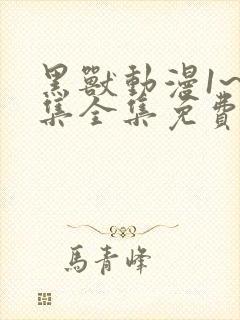 黑獸動漫1~
集全集免費
馬青峰